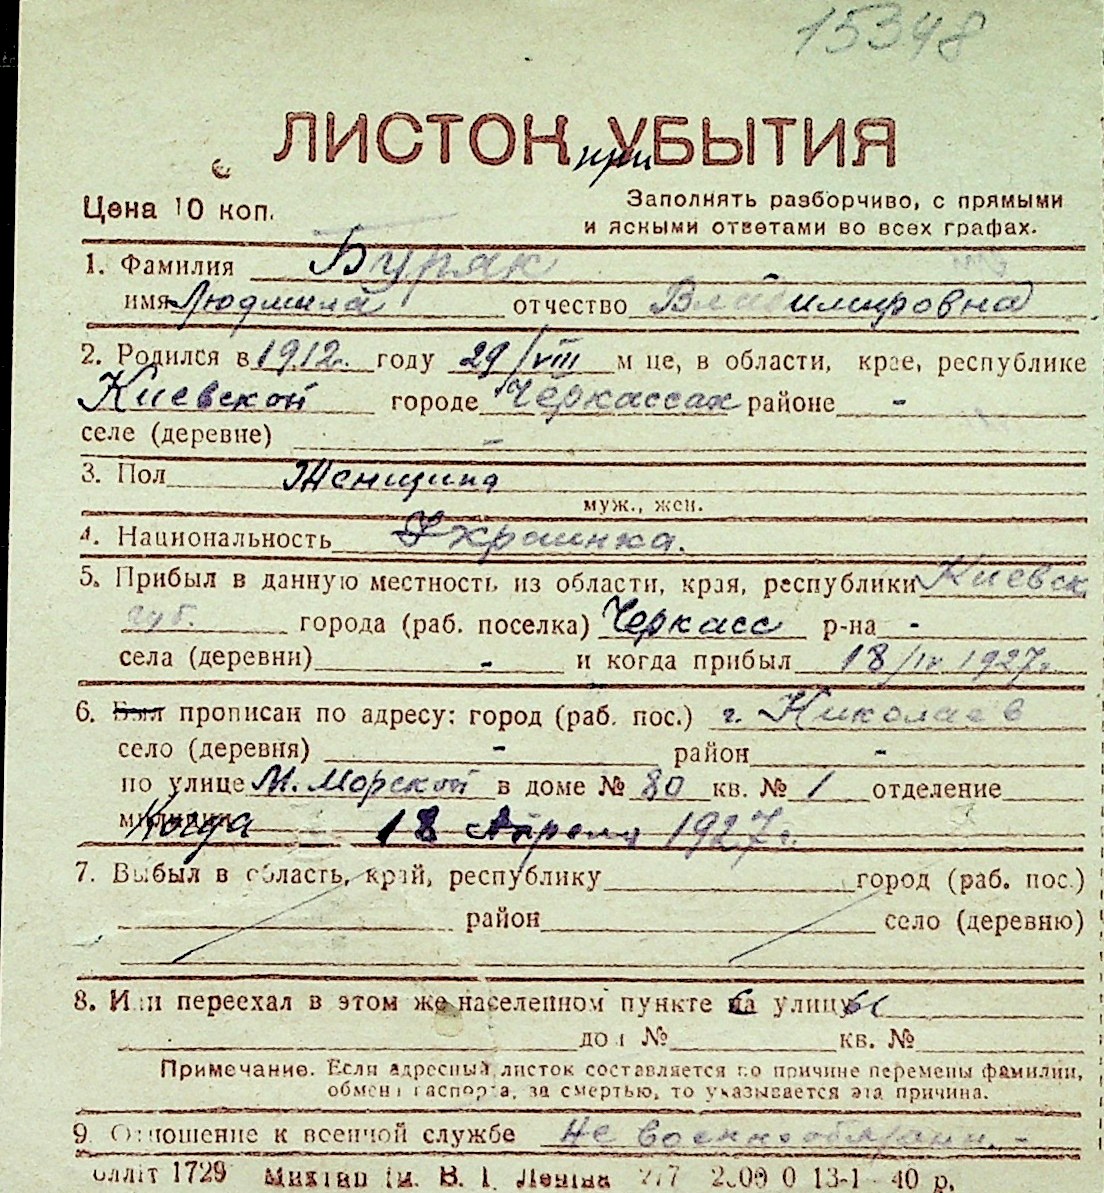 15348
ЛИСТОК при УБЫТИЯ
Цена 10 коп.
Заполнять разборчиво, с прямыми
и ясными ответами во всех графах.
1. Фамилия Буряк
имя Людмила отчество Владимировна
2. Родился в 1912. году 29/VIII м це, в области, крае, республике
Киевской городе Черкассах районе -
селе (деревне) -
3. Пол Женщина
муж., жен.
4. Национальность Украинка.
5. Прибыл в данную местность из области, края, республики Киевск
губ. города (раб. поселка) Черкасс р-на -
села (деревни) - и когда прибыл 18/IV 1927г.
6. Был прописан по адресу: город (раб. пос.) г. Николаев
село (деревня) - район -
по улице М. Морской в доме № 80 кв. № 1 отделение
Когда 18 Апреля 1927г.
7. Выбыл в область, край, республику город (раб. пос.)
район село (деревню)
8. Или переехал в этом же населенном пункте с улицы
дом № кв. №
Примечание. Если адресный листок составляется по причине перемены фамилии,
обмена паспорта, за смертью, то указывается эта причина.
9. Отношение к военной службе Не военнообязанн. -
1729 ім. В. І. Леніна 13-1 40 р.